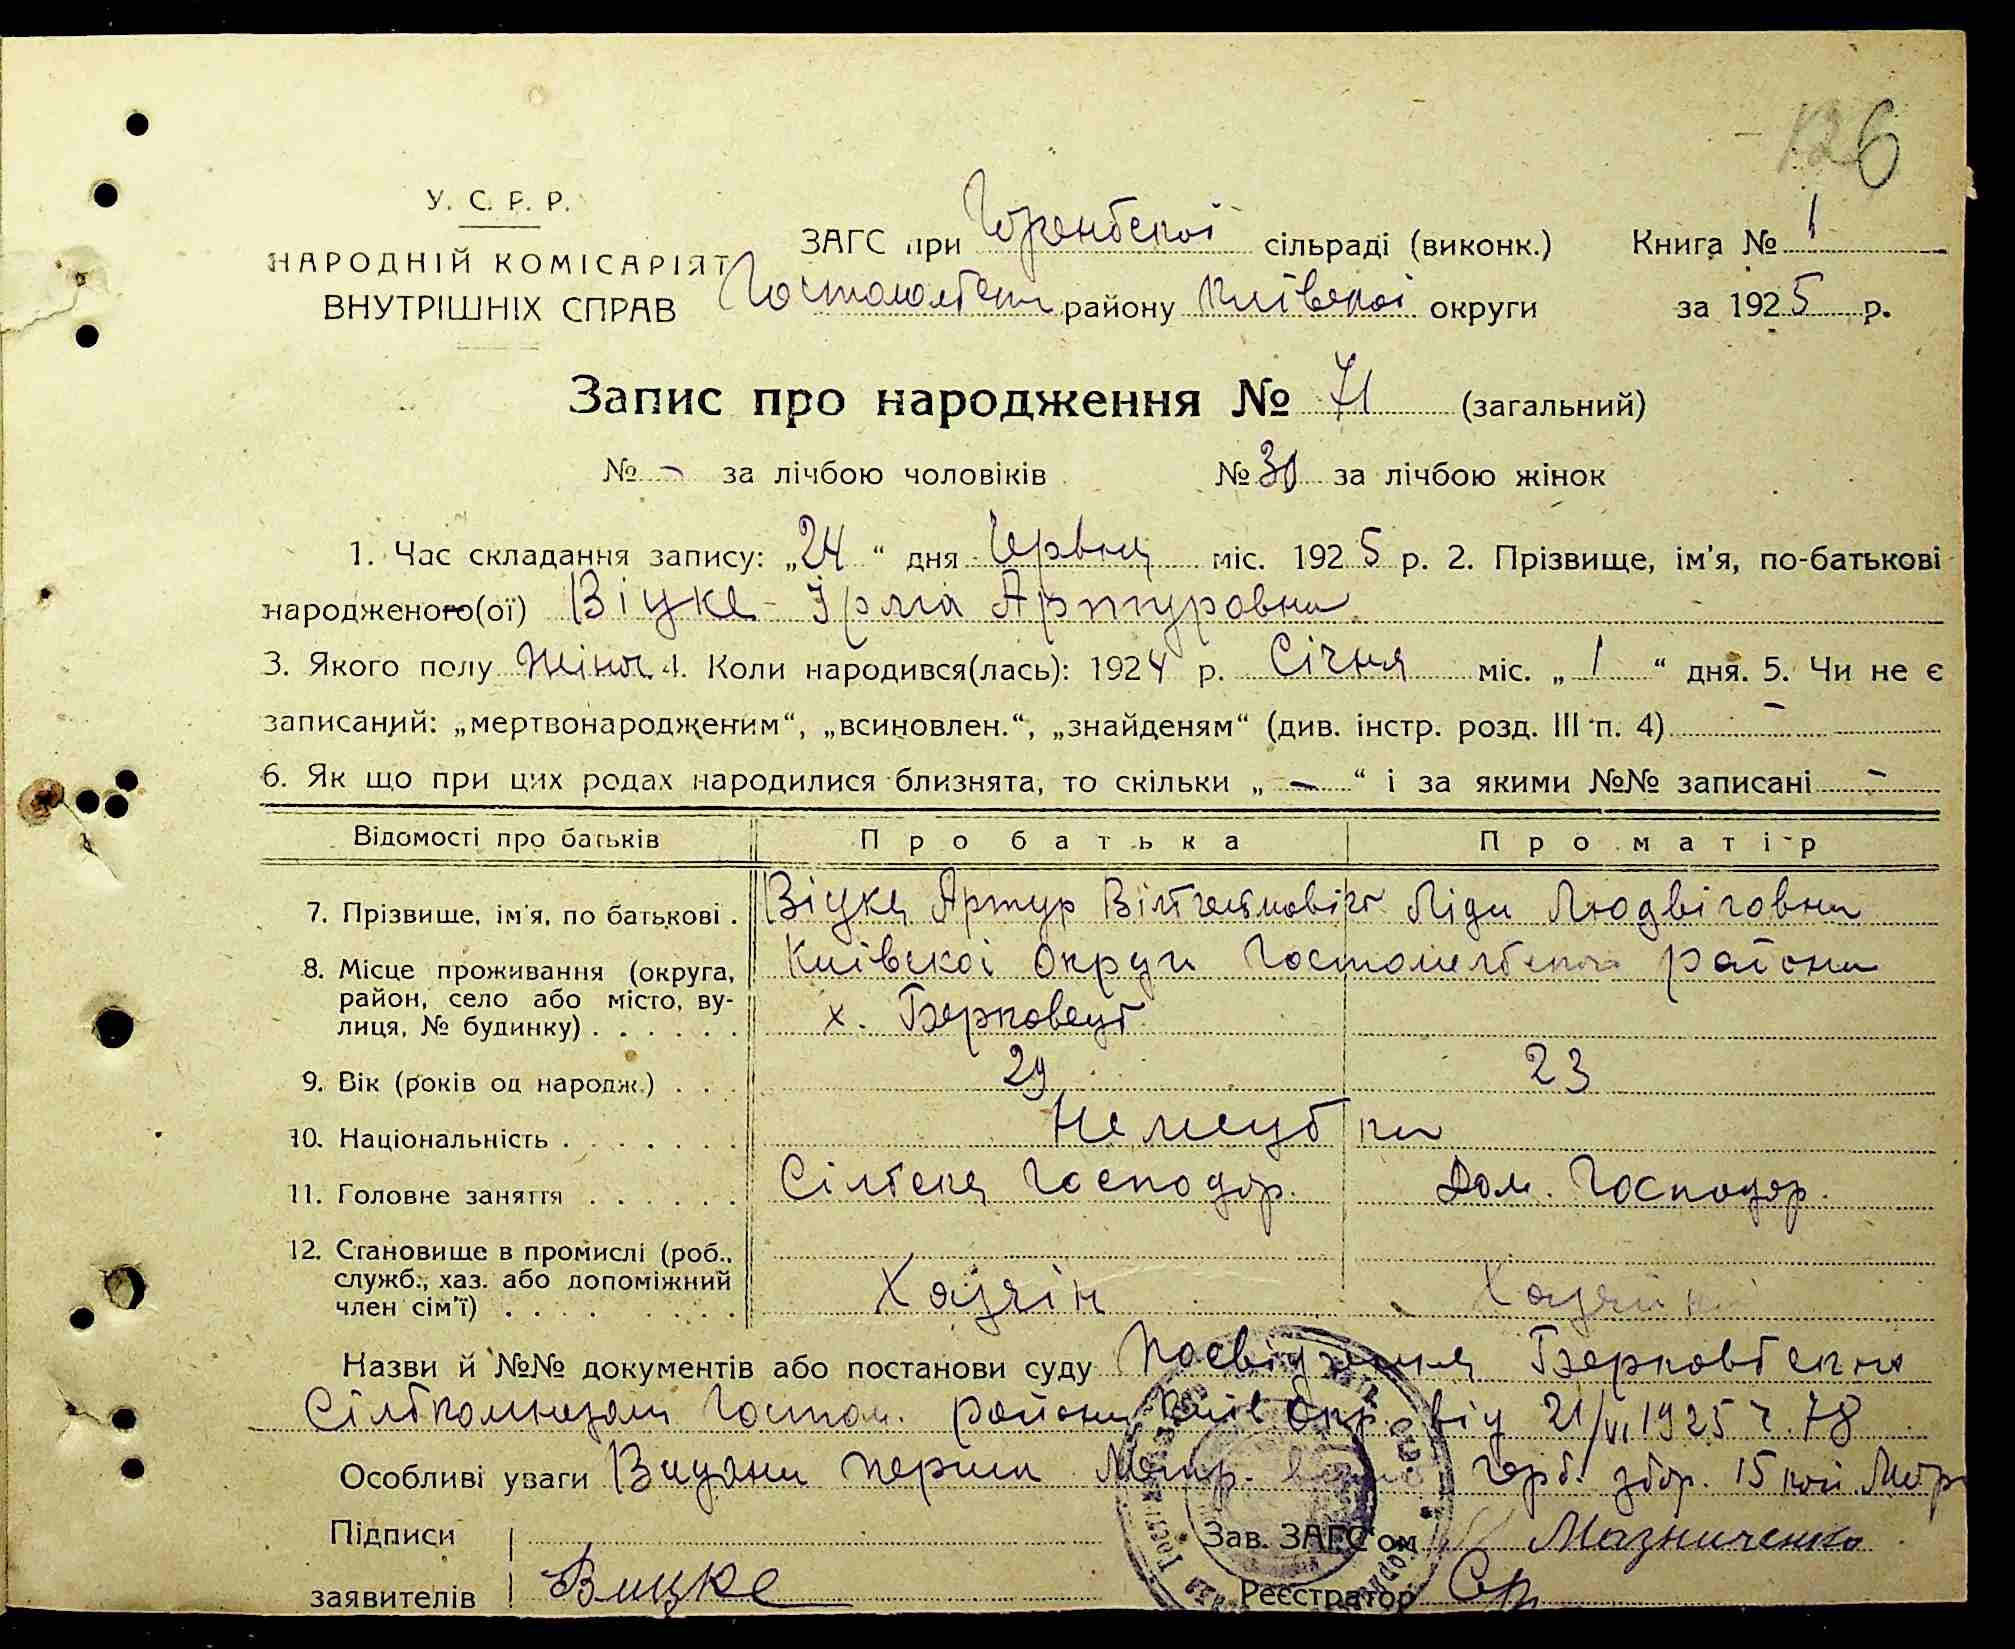 126
У. С. Р. Р.
НАРОДНІЙ КОМІСАРІЯТ
ВНУТРІШНІХ СПРАВ
ЗАГС при Горенської сільраді (виконк.) Книга № 1
Гостомльськ району Київської округи за 1925 р.
Запис про народження № 71 (загальний)
№ - за лічбою чоловіків № 30 за лічбою жінок
1. Час складання запису: „24“ дня Червня міс. 1925 р. 2. Прізвище, ім'я, по-батькові
народженого(ої) Віцке Ірма Артуровна
3. Якого полу Жіноч. 4. Коли народився(лась): 1924 р. Січня міс. „1“ дня. 5. Чи не є
записаний: „мертвонародженим“, „всиновлен.“, „знайденям“ (див. інстр. розд. III п. 4) -
6. Як що при цих родах народилися близнята, то скільки „-“ і за якими №№ записані -
Відомості про батьків Про батька Про матір
7. Прізвище, ім'я, по батькові . Віцке Артур Лідия Людвіговна
8. Місце проживання (округа, Київскої Округи района
район, село або місто, ву- х. Берковець
лиця, № будинку) . . . . . .
9. Вік (років од народж.) . . . 29 23
10. Національність . . . . . . . Немець ки
11. Головне заняття . . . . . . Сільске Господар. Дом. Господар.
12. Становище в промислі (роб.,
служб., хаз. або допоміжний Хазяін Хазяйка
член сім'ї) . . . . . . . .
Назви й №№ документів або постанови суду Посвідчення Берковьского
Гостом. району Київ. Окр. від 21/VI 1925 ч. 78
Особливі уваги Видани перша Метр. герб. збор. 15 коп
Підписи Зав. ЗАГС'ом Мазниченко
заявителів Вицке Реєстратор